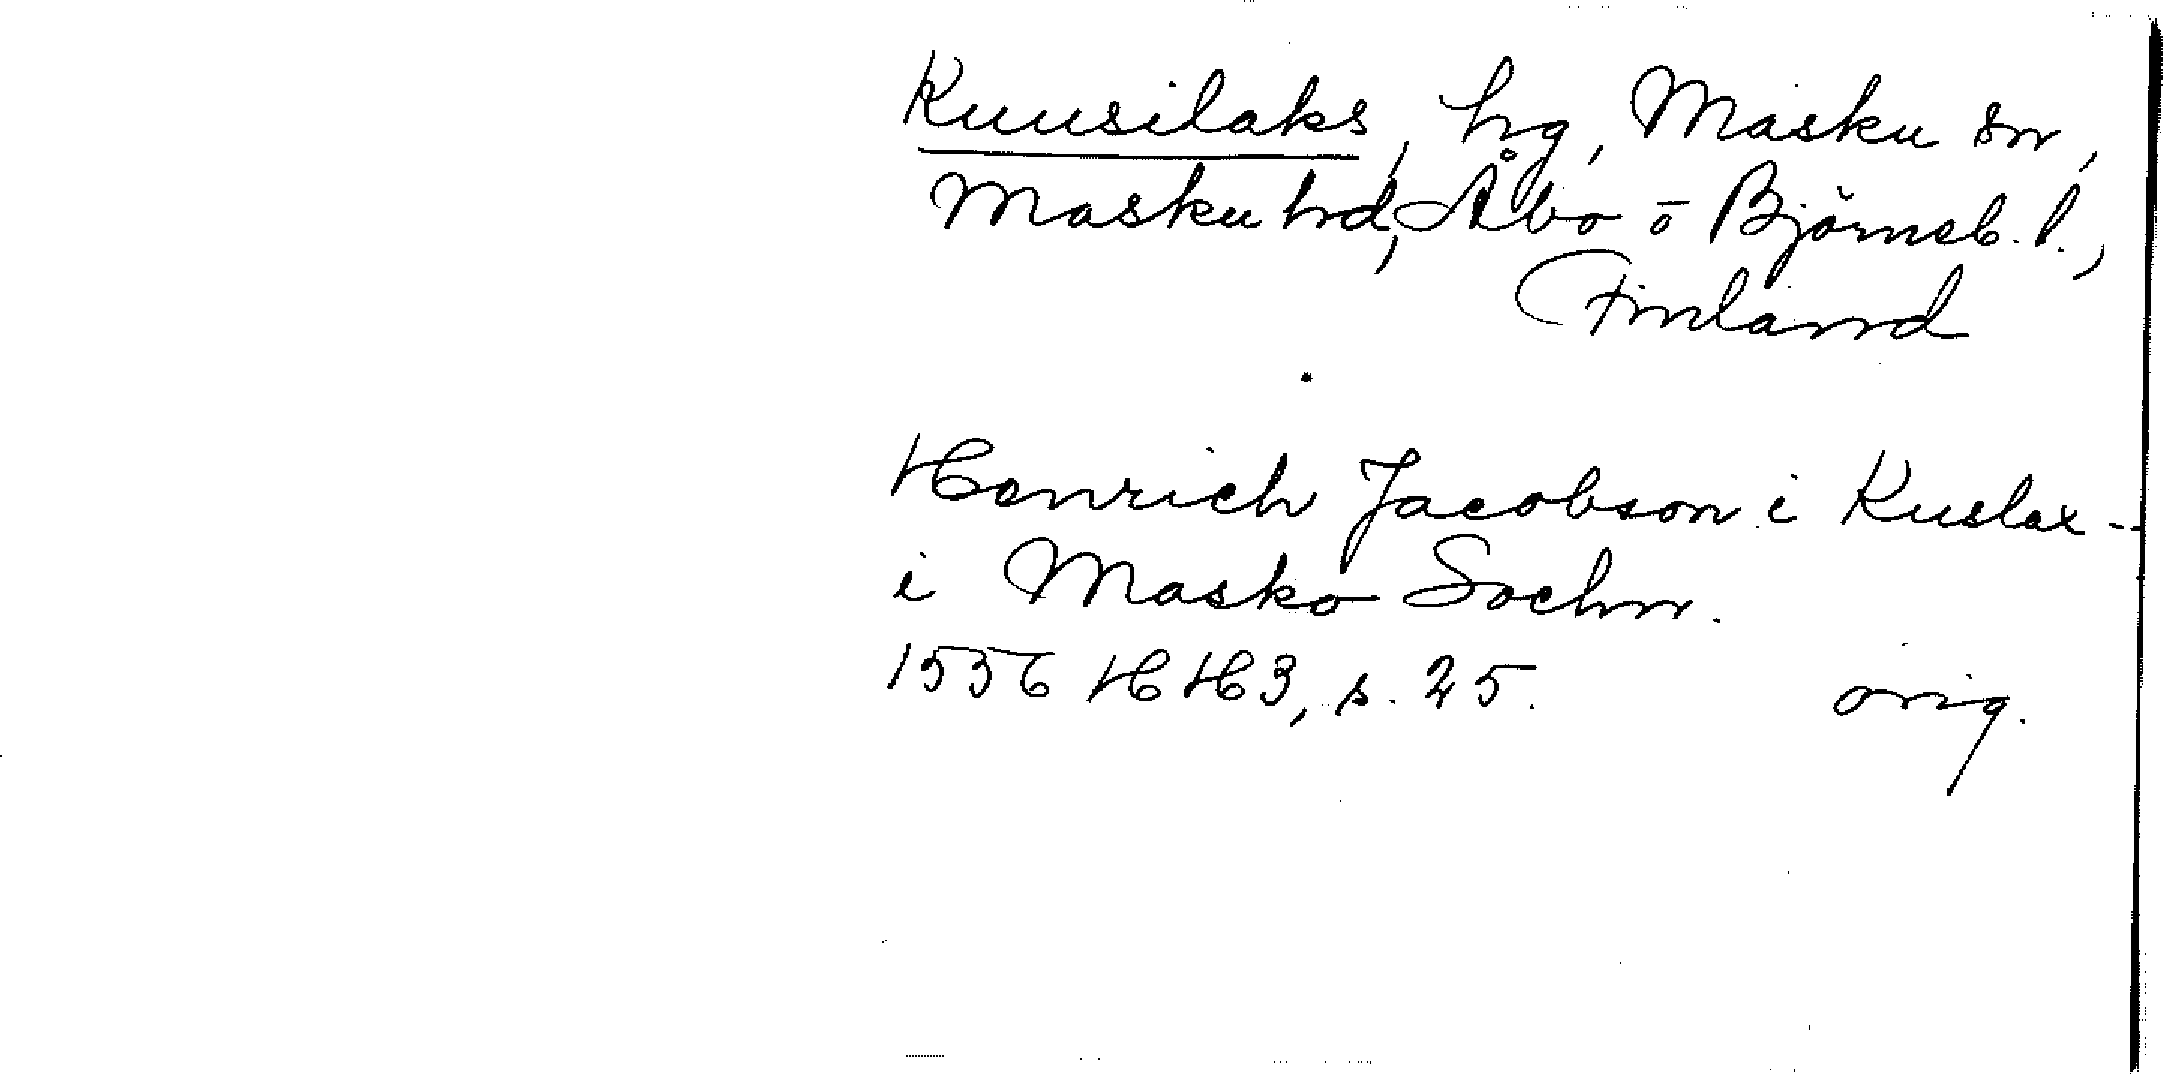 Kuusilaks, hg, Masku sn,
Masku hd, Åbo o Björneb. l.,
Finland
Henrich Jacobson i Kuslax --
i Masko Sochn.
1556 HH3, s. 25. orig.